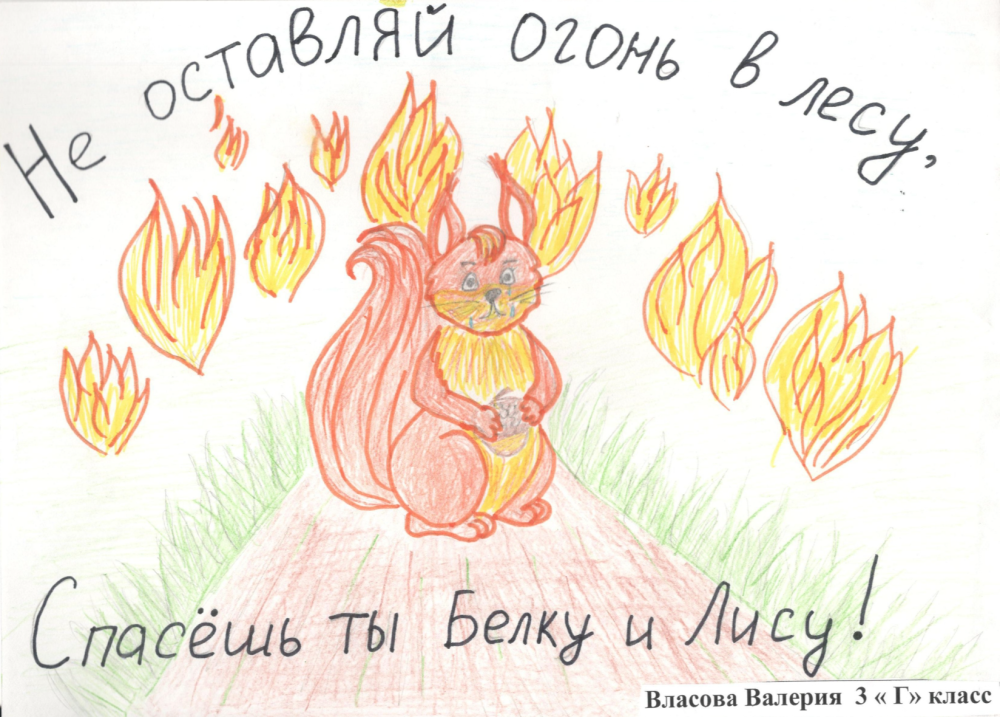 Не оставляй огонь в лесу,
Спасёшь ты Белку и Лису!
Власова Валерия 3 « Г» класс